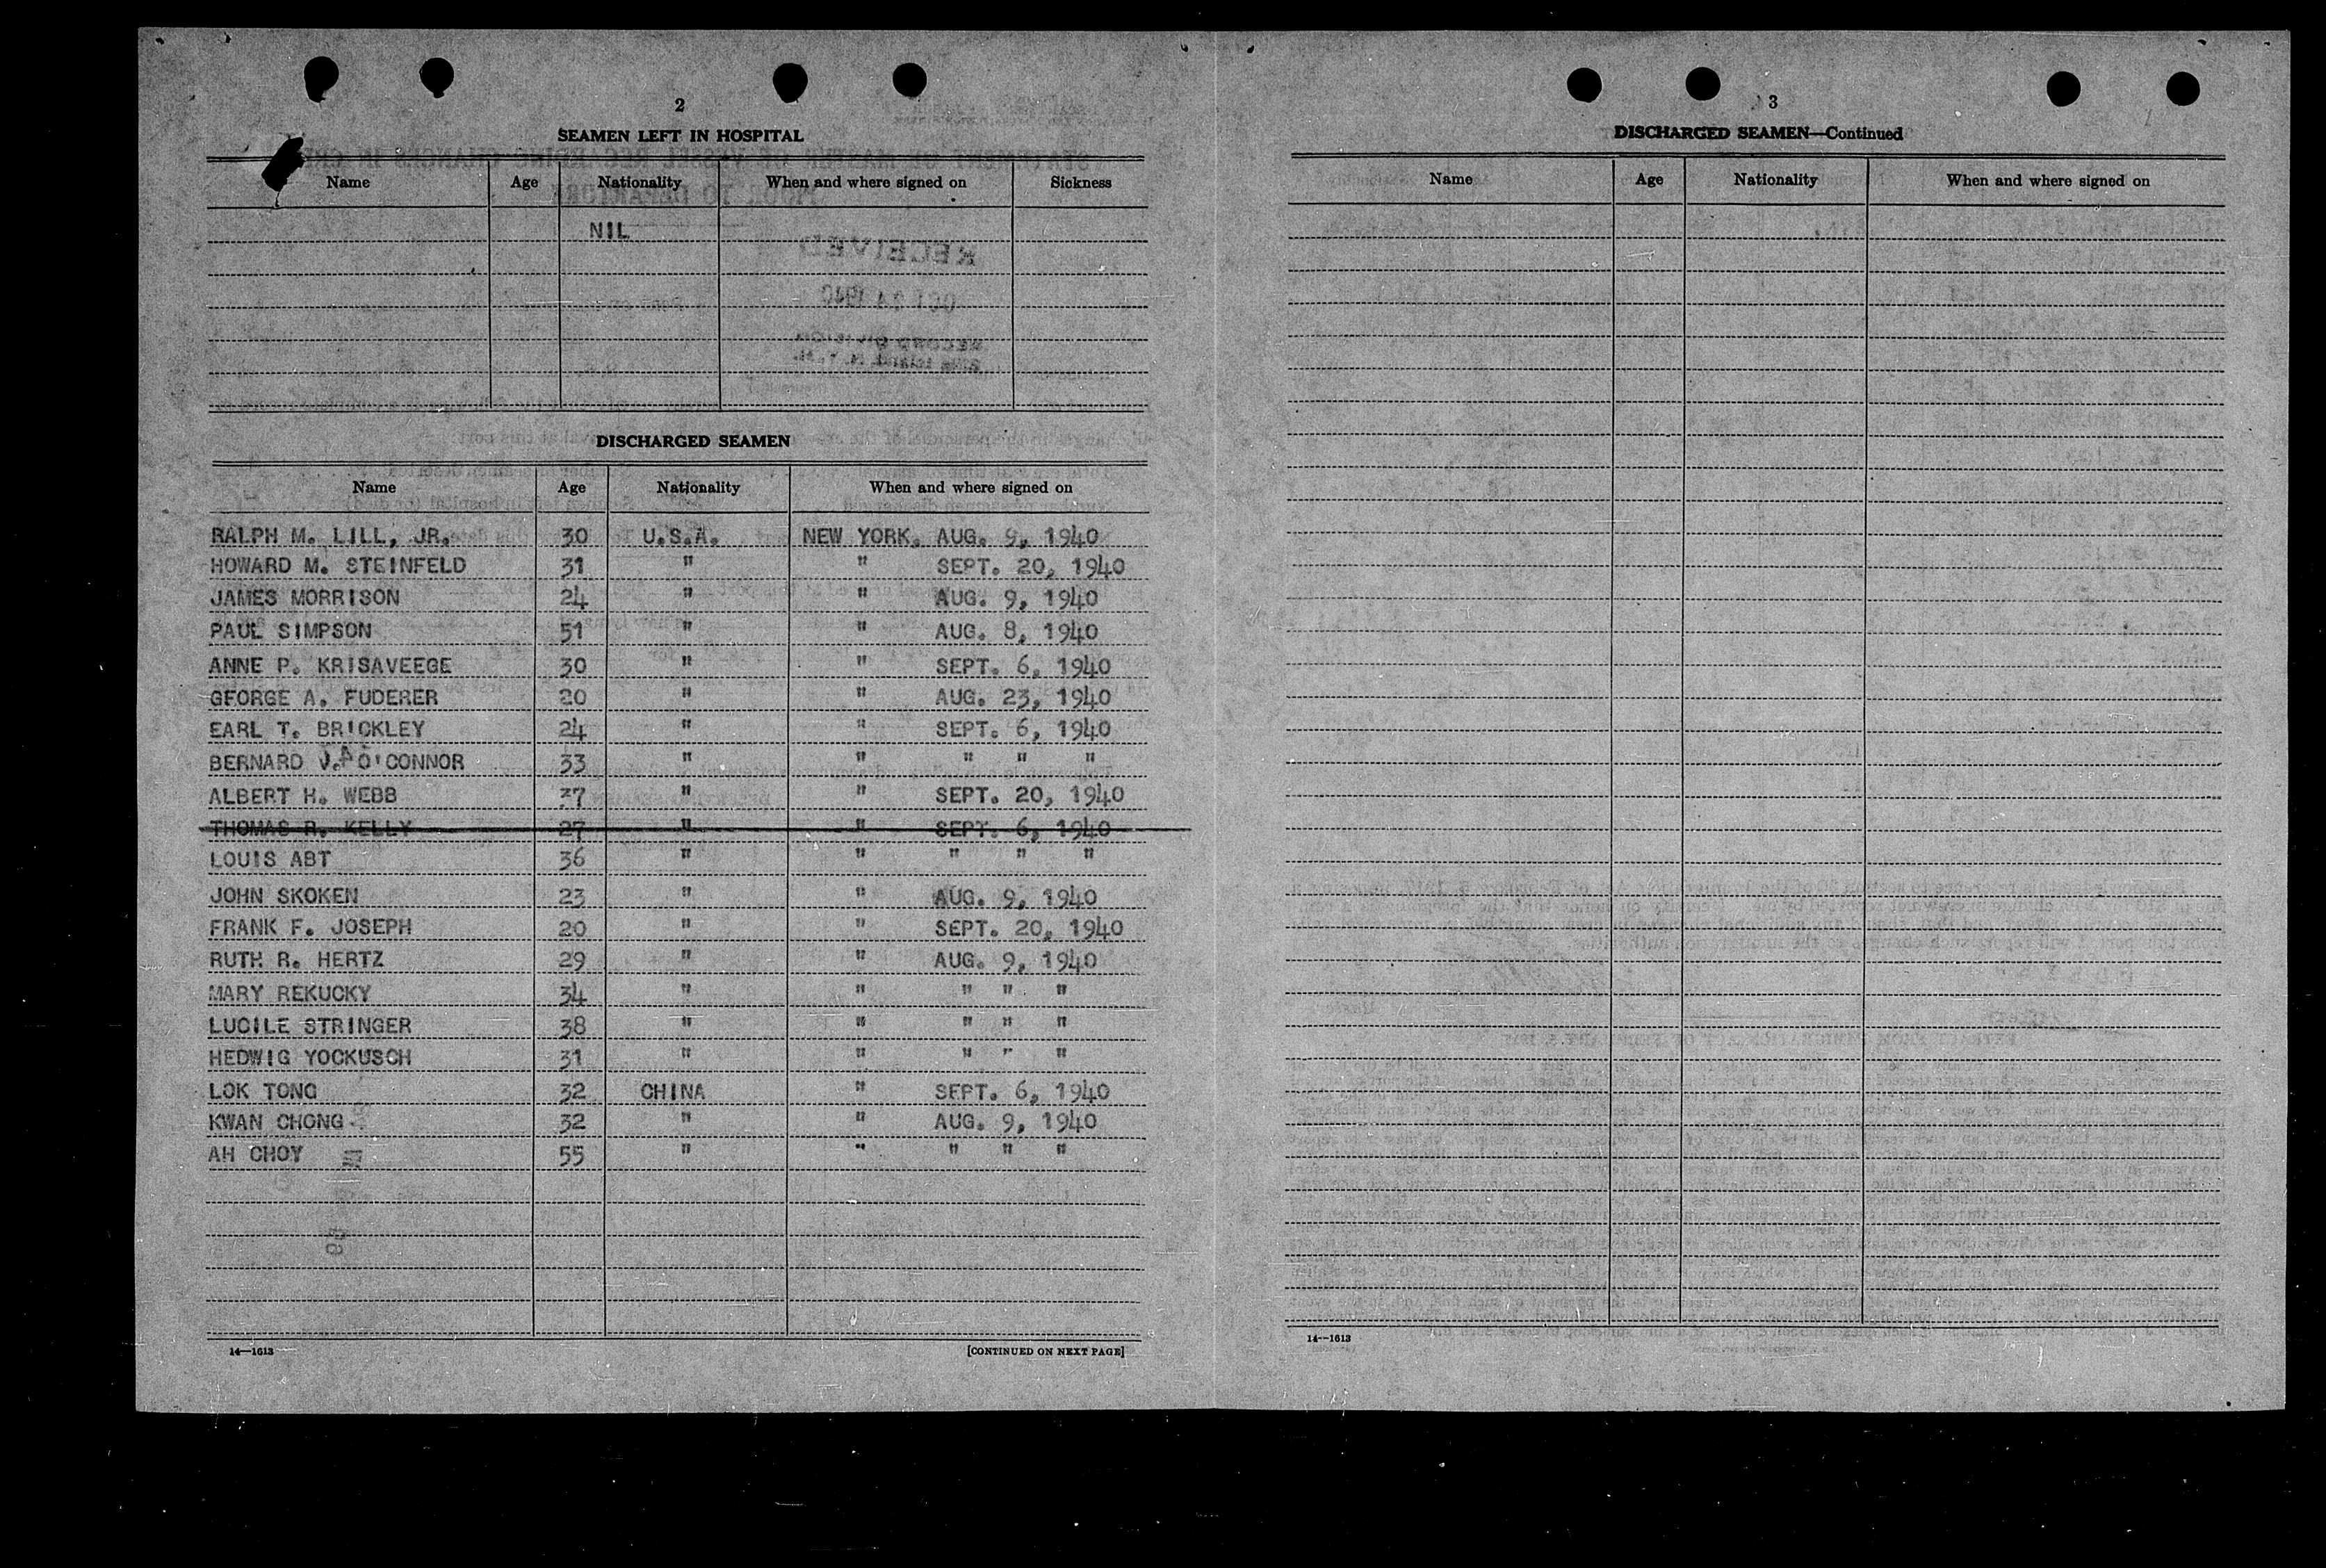 2
SEAMEN LEFT IN HOSPITAL
Name Age Nationality When and where signed on Sickness
NIL
DISCHARGED SEAMEN
Name Age Nationality When and where signed on
RALPH M. LILL, JR. 30 U.S.A. NEW YORK. AUG. 9, 1940
HOWARD M. STEINFELD 31 " " SEPT. 20, 1940
JAMES MORRISON 24 " " AUG. 9, 1940
PAUL SIMPSON 51 " " AUG. 8, 1940
ANNE P. KRISAVEEGE 30 " " SEPT. 6, 1940
GEORGE A. FUDERER 20 " " AUG. 23, 1940
EARL T. BRICKLEY 24 " " SEPT. 6, 1940
BERNARD O'CONNOR 33 " " " " "
ALBERT H. WEBB 37 " " SEPT. 20, 1940
THOMAS R. KELLY 27 " " SEPT. 6, 1940
LOUIS ABT 36 " " " " "
JOHN SKOKEN 23 " " AUG. 9, 1940
FRANK F. JOSEPH 20 " " SEPT. 20, 1940
RUTH R. HERTZ 29 " " AUG. 9, 1940
MARY REKUCKY 34 " " " " "
LUCILE STRINGER 38 " " " " "
HEDWIG YOCKUSCH 31 " " " " "
LOK TONG 32 CHINA " SEPT. 6, 1940
KWAN CHONG 32 " " AUG. 9, 1940
AH CHOY 55 " " " " "
14—1613 [CONTINUED ON NEXT PAGE]
3
DISCHARGED SEAMEN—Continued
Name Age Nationality When and where signed on
14—1613